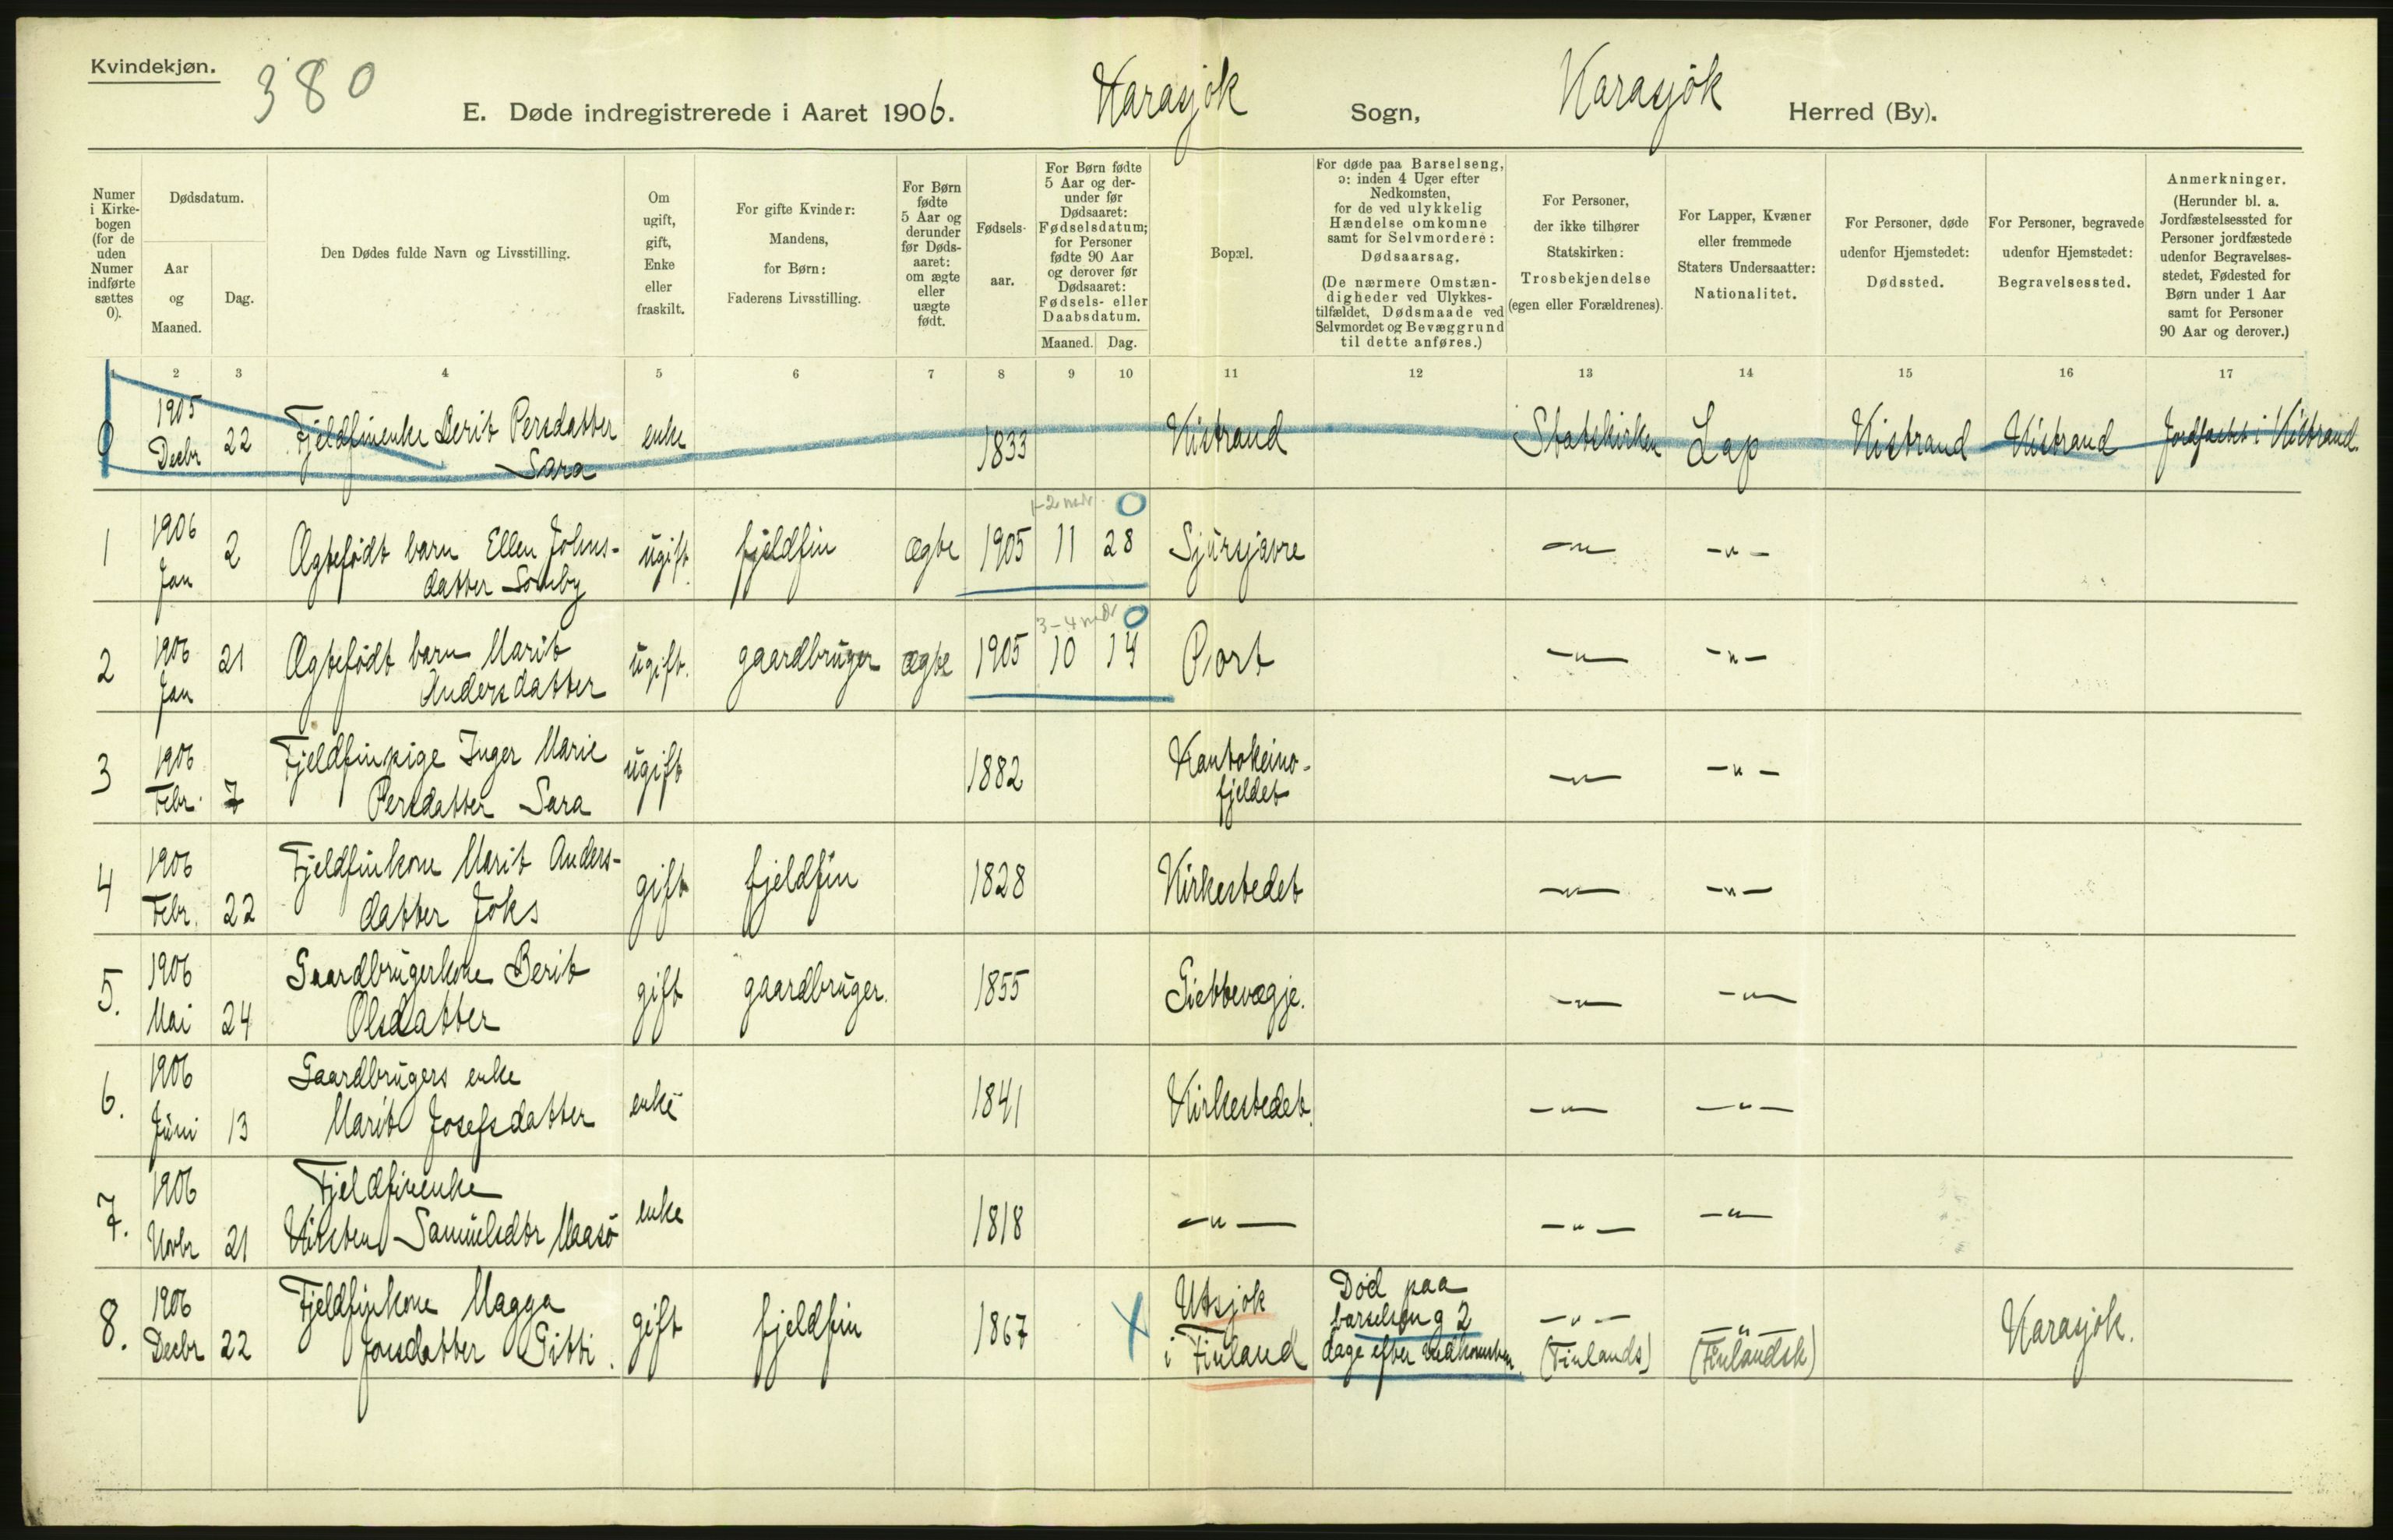 Kvindekjøn.
380
E. Døde indregistrerede i Aaret 1906. Karasjok Sogn, Karasjok Herred (By).
Numer i Kirkebogen (for de uden Numer indførte sættes 0).
Dødsdatum.
Aar og Maaned.
Dag.
Den Dødes fulde Navn og Livsstilling.
Om ugift, gift, Enke eller fraskilt.
For gifte Kvinder: Mandens, for Børn: Faderens Livsstilling.
For Børn fødte 5 Aar og derunder før Dødsaaret: om ægte eller uægte født.
Fødselsaar.
For Børn fødte 5 Aar og derunder før Dødsaaret: Fødselsdatum; for Personer fødte 90 Aar og derover før Dødsaaret: Fødsels- eller Daabsdatum.
Maaned. Dag.
Bopæl.
For døde paa Barselseng, ɔ: inden 4 Uger efter Nedkomsten, for de ved ulykkelig Hændelse omkomne samt for Selvmordere: Dødsaarsag.
(De nærmere Omstændigheder ved Ulykkestilfældet, Dødsmaade ved Selvmordet og Bevæggrund til dette anføres.)
For Personer, der ikke tilhører Statskirken: Trosbekjendelse (egen eller Forældrenes).
For Lapper, Kvæner eller fremmede Staters Undersaatter: Nationalitet.
For Personer, døde udenfor Hjemstedet: Dødssted.
For Personer, begravede udenfor Hjemstedet: Begravelsessted.
Anmerkninger. (Herunder bl. a. Jordfæstelsessted for Personer jordfæstede udenfor Begravelsesstedet, Fødested for Børn under 1 Aar samt for Personer 90 Aar og derover.)
1 2 3 4 5 6 7 8 9 10 11 12 13 14 15 16 17
0 1905 Decbr 22 Fjeldfinenke Berit Persdatter Sara enke 1833 Kistrand Statskirken Lap Kistrand Kistrand Jordfæstet i Kistrand.
1 1906 Jan 2 Ægtefødt barn Ellen Johns-datter Somby ugift fjeldfin ægte 1905 11 28 Sjursjavre —"— —"—
1-2 mdr. 0
2 1906 Jan 21 Ægtefødt barn Marit Andersdatter ugift. gaardbruger ægte 1905 10 14 Port —"— —"—
3-4 mdr 0
3 1906 Febr. 7 Fjeldfinpige Inger Marie Persdatter Sara ugift 1882 Kautokeino-fjeldet —"— —"—
4 1906 Febr. 22 Fjeldfinkone Marit Anders-datter Joks gift fjeldfin 1828 Kirkestedet —"— —"—
5. 1906 Mai 24 Gaardbrugerkone Berit Olsdatter gift gaardbruger. 1855 Giebbevagje. —"— —"—
6. 1906 Juni 13 Gaardbrugers enke Marit Josefsdatter enke 1841 Kirkestedet. —"— —"—
7. 1906 Novbr 21 Fjeldfinenke Kirsten Samuelsdtr Maasö enke 1818 —"— —"— —"—
8. 1906 Decbr 22 Fjeldfinkone Magga Jonsdatter Pitti. gift fjeldfin 1867 X Utsjok i Finland Död paa barselseng 2 dage efter nedkomsten. —"— (Finlands) —"— (Finlandsk) Karasjok.